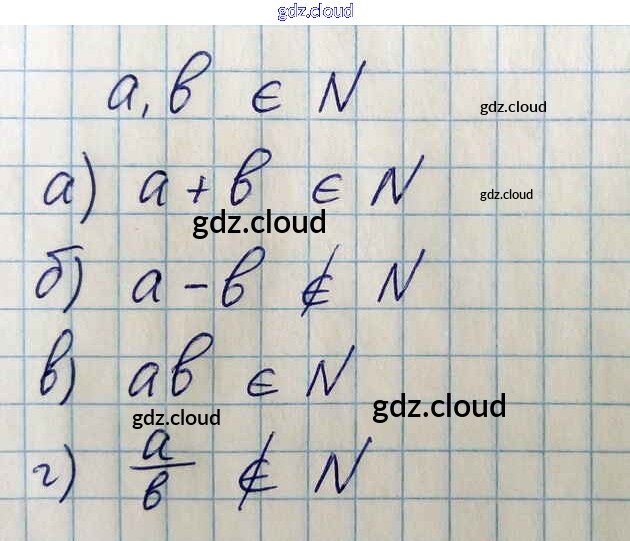 gdz.cloud
a, b ∈ N
gdz.cloud
а) a + b ∈ N
gdz.cloud
gdz.cloud
б) a - b ∉ N
в) ab ∈ N
gdz.cloud
gdz.cloud
г) a/b ∉ N